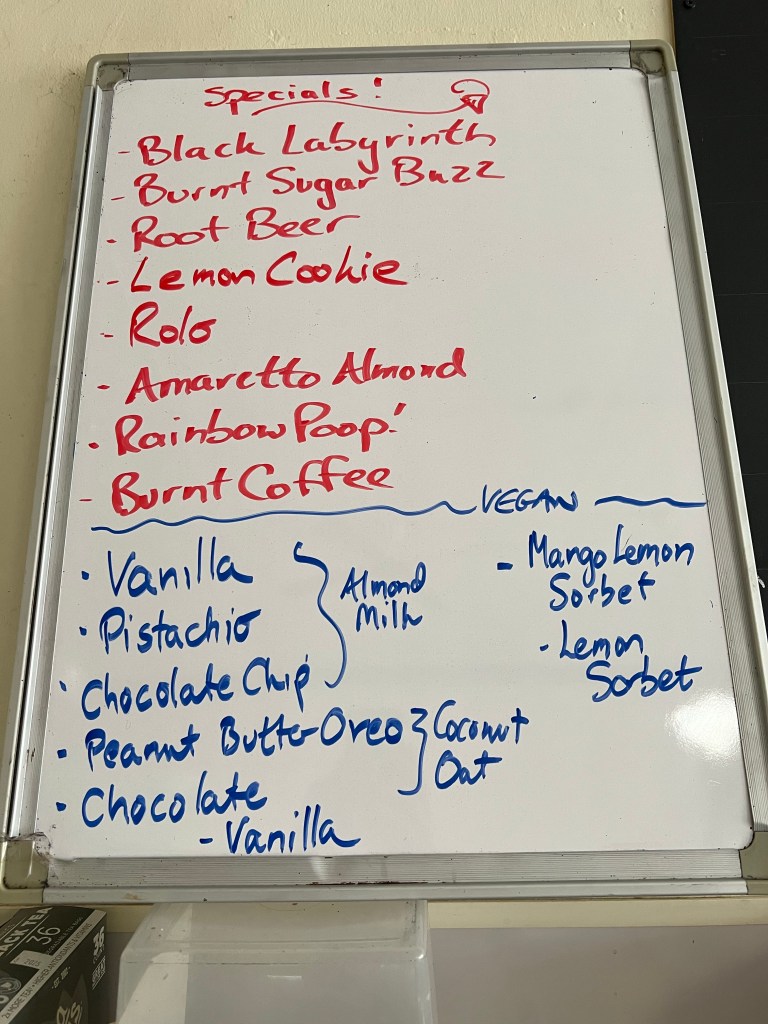 Specials!
- Black Labyrinth
- Burnt Sugar Buzz
- Root Beer
- Lemon Cookie
- Rolo
- Amaretto Almond
- Rainbow Poop!
- Burnt Coffee
VEGAN
- Vanilla
- Pistachio
- Chocolate Chip
Almond
Milk
- Peanut Butter Oreo
- Chocolate
- Vanilla
Coconut
Oat
- Mango Lemon
Sorbet
- Lemon
Sorbet
ACK TEA
36
36